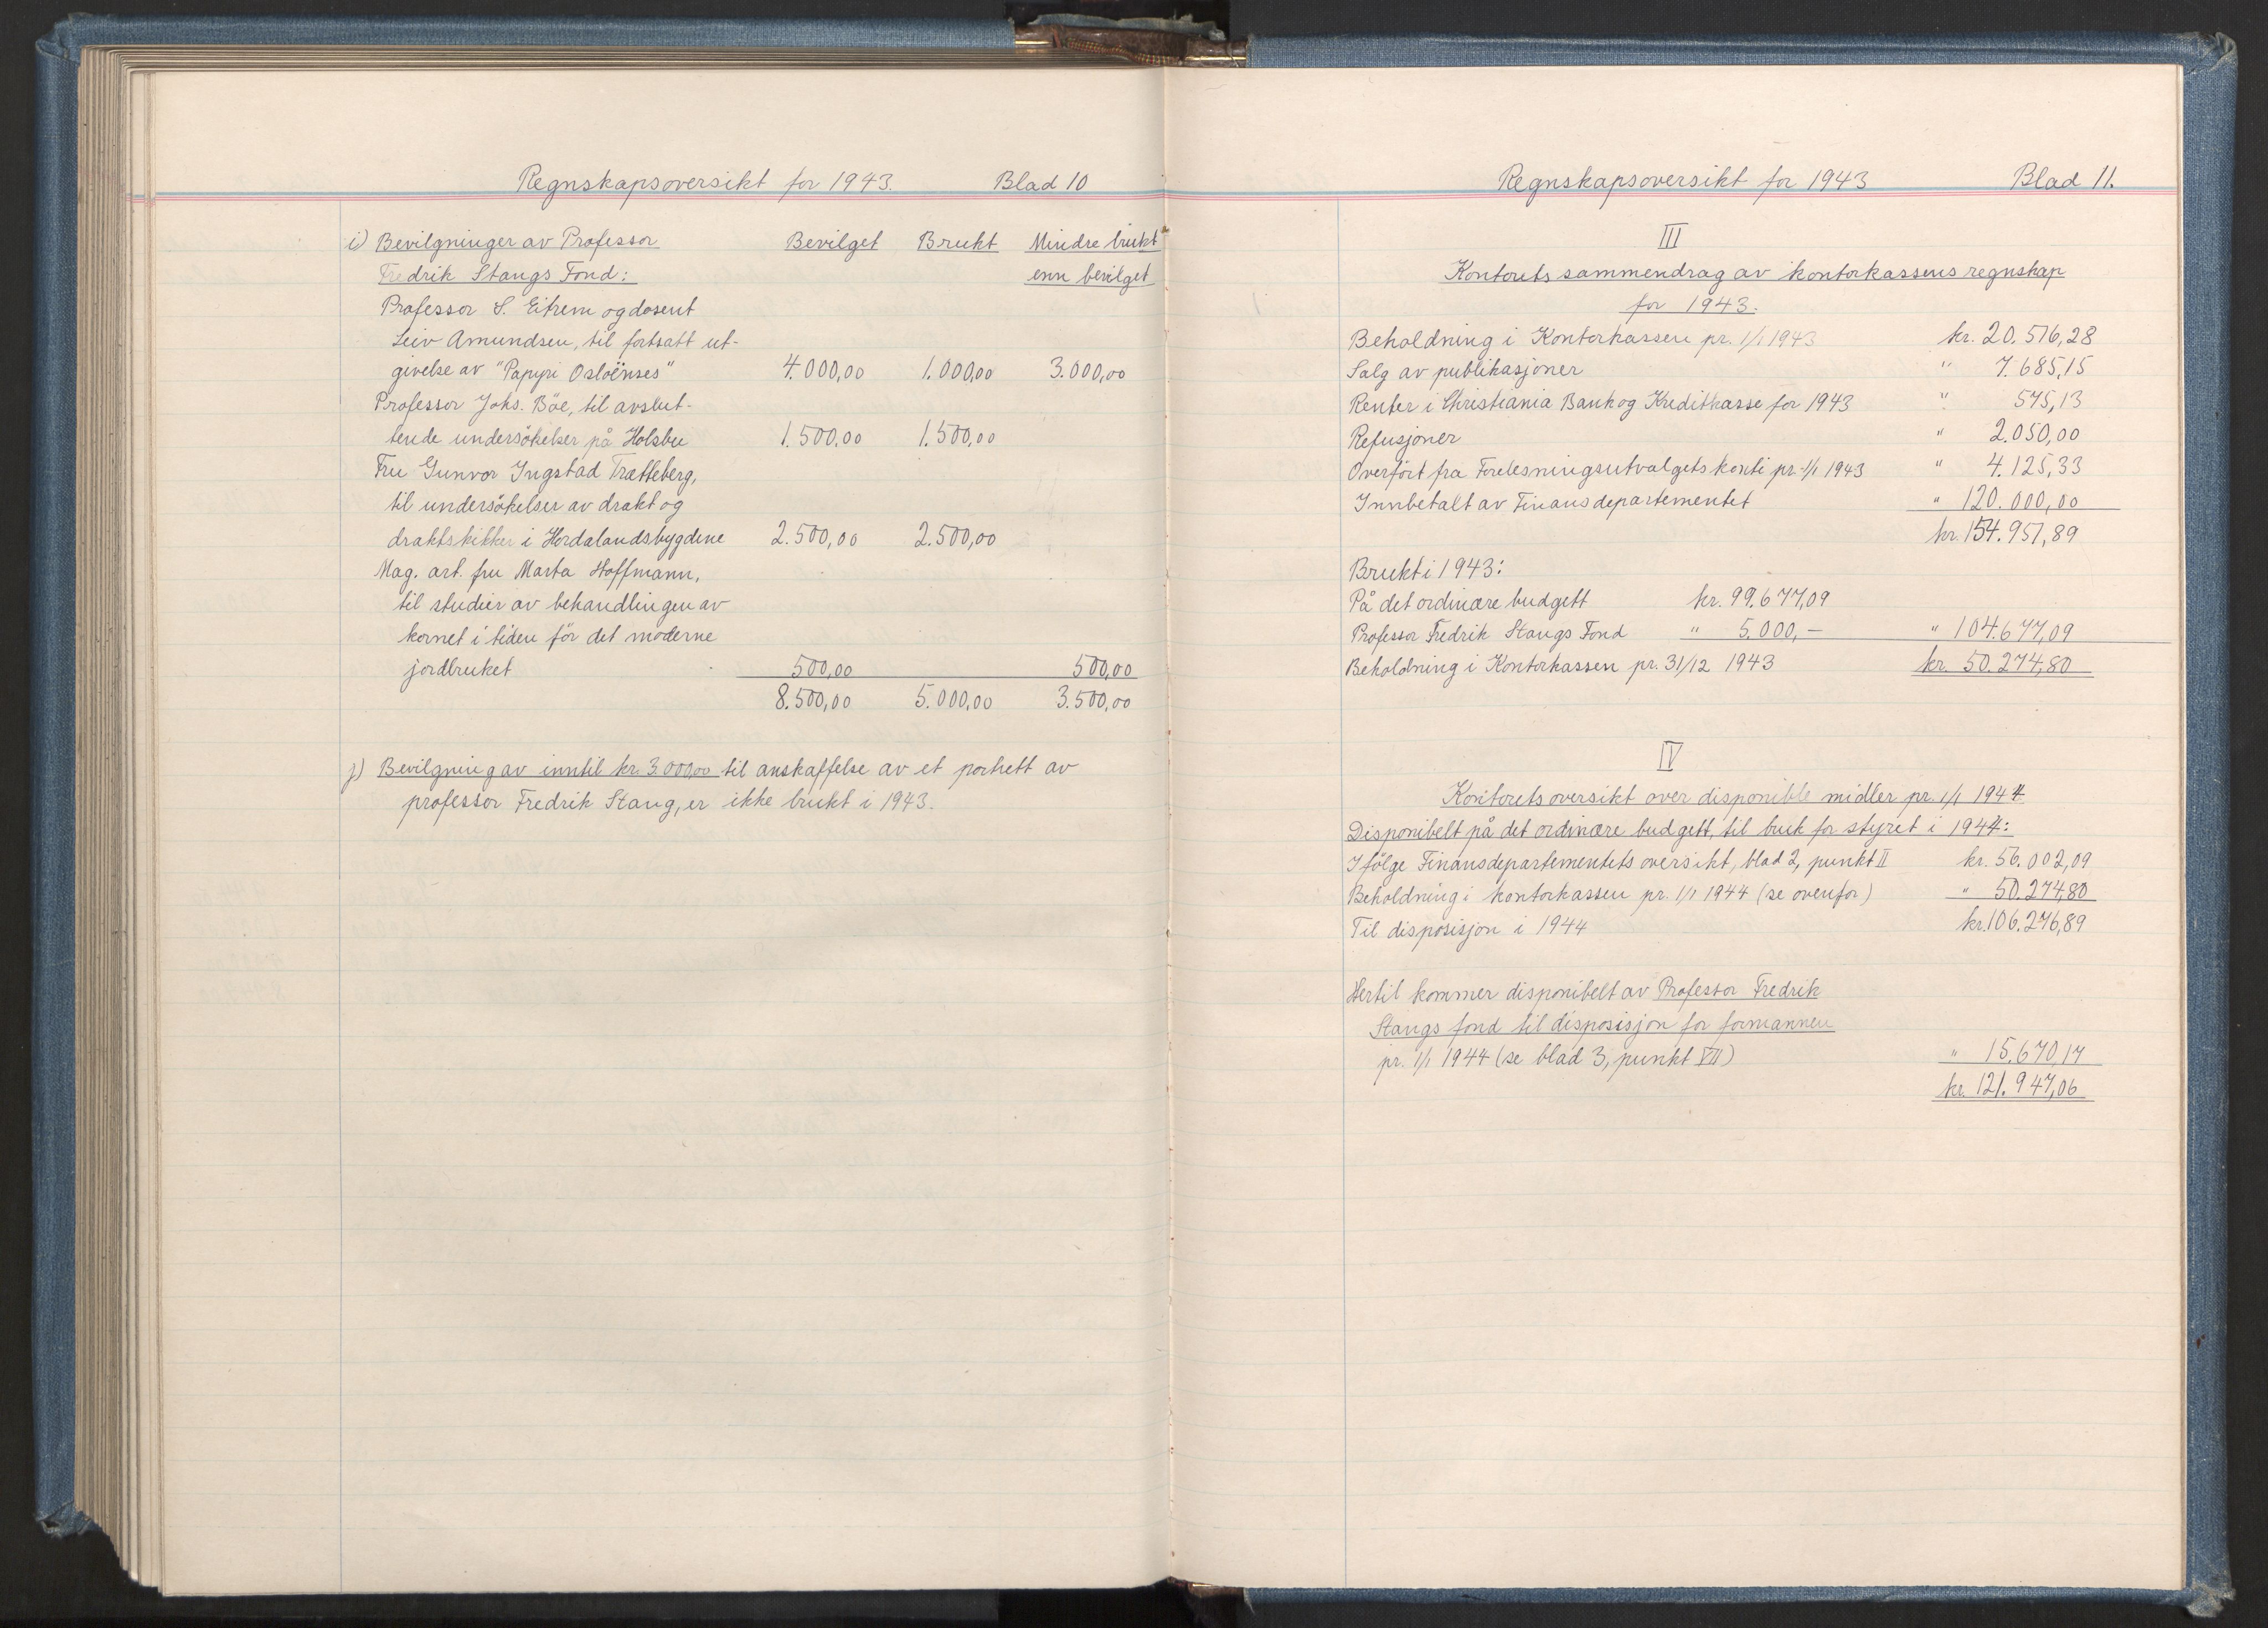 Regnskapsoversikt for 1943. Blad 10
i) Bevilgninger av Professor Bevilget Brukt Mindre brukt
Fredrik Stangs Fond: enn bevilget
Professor S. Eitrem og dosent
Leiv Amundsen, til fortsatt ut-
givelse av "Papyri Osloënses" 4.000,00 1.000,00 3.000,00
Professor Johs. Böe, til avslut-
tende undersökelser på Holsbu 1.500,00 1.500,00
Fru Gunvor Ingstad Trætteberg,
til undersökelser av drakt og
draktskikker i Hordalandsbygdene 2.500,00 2.500,00
Mag. art. fru Marta Hoffmann,
til studier av behandlingen av
kornet i tiden för det moderne
jordbruket 500,00 500,00
8.500,00 5.000,00 3.500,00
j) Bevilgning av inntil kr. 3.000,00 til anskaffelse av et portrett av
professor Fredrik Stang, er ikke brukt i 1943.
Regnskapsoversikt for 1943 Blad 11.
III
Kontorets sammendrag av kontorkassens regnskap
for 1943.
Beholdning i Kontorkassen pr. 1/1 1943 kr. 20.516,28
Salg av publikasjoner " 7.685,15
Renter i Christiania Bank og Kreditkasse for 1943 " 575,13
Refusjoner " 2.050,00
Overfört fra Forelesningsutvalgets konti pr. 1/1 1943 " 4.125,33
Innbetalt av Finansdepartementet " 120.000,00
kr. 154.951,89
Brukt i 1943:
På det ordinære budgett kr. 99.677,09
Professor Fredrik Stangs Fond " 5.000,- " 104.677,09
Beholdning i Kontorkassen pr. 31/12 1943 kr. 50.274,80
IV
Kontorets oversikt over disponible midler pr. 1/1 1944
Disponibelt på det ordinære budgett, til bruk for styret i 1944:
Ifölge Finansdepartementets oversikt, blad 2, punkt II kr. 56.002,09
Beholdning i kontorkassen pr. 1/1 1944 (se ovenfor) " 50.274,80
Til disposisjon i 1944 kr. 106.276,89
Hertil kommer disponibelt av Professor Fredrik
Stangs fond til disposisjon for formannen
pr. 1/1 1944 (se blad 3, punkt VII) " 15.670,17
kr. 121.947,06